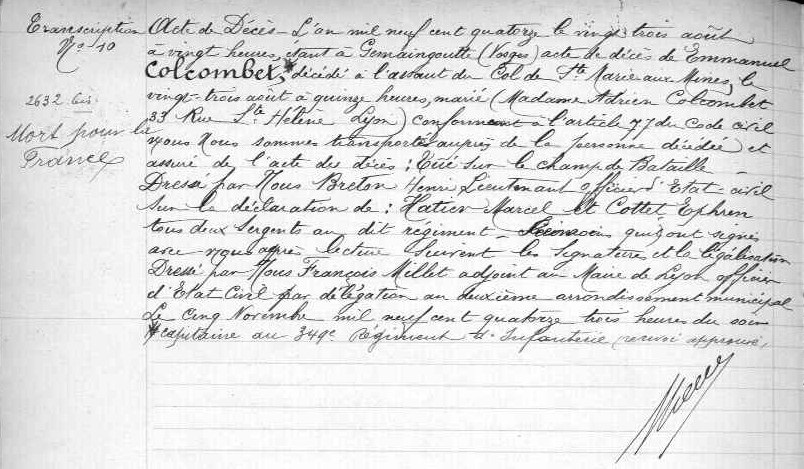 Transcription
No 10
2632 bis
Mort pour la
France
Acte de Décès - L'an mil neuf cent quatorze le vingt trois août
à vingt heures, étant à Gemaingoutte (Vosges) acte de décès de Emmanuel
Colcombet,* décédé à l'assaut du Col de Ste Marie aux Mines, le
vingt-trois août à quinze heures, marié (Madame Adrien Colcombet
33 Rue Ste Hélène Lyon) conformement à l'article 77 du Code civil
nous nous sommes transporté auprès de la personne décédée et
assuré de l'acte des décès : Tué sur le champ de Bataille -
Dressé par Nous Breton Henri Lieutenant officier d'Etat-civil
sur la déclaration de : Hatier Marcel et Cottet Ephren
tous deux sergents au dit régiment - témoins qui ont signé
avec nous après lecture Suivent les Signatures et la légalisation
Dressé par Nous François Millet adjoint au Maire de Lyon officier
d'Etat Civil par délégation au deuxième arrondissement municipal
Le cinq Novembre mil neuf cent quatorze trois heures du soir
* capitaine au 349e Régiment d'Infanterie (renvoi approuvé,